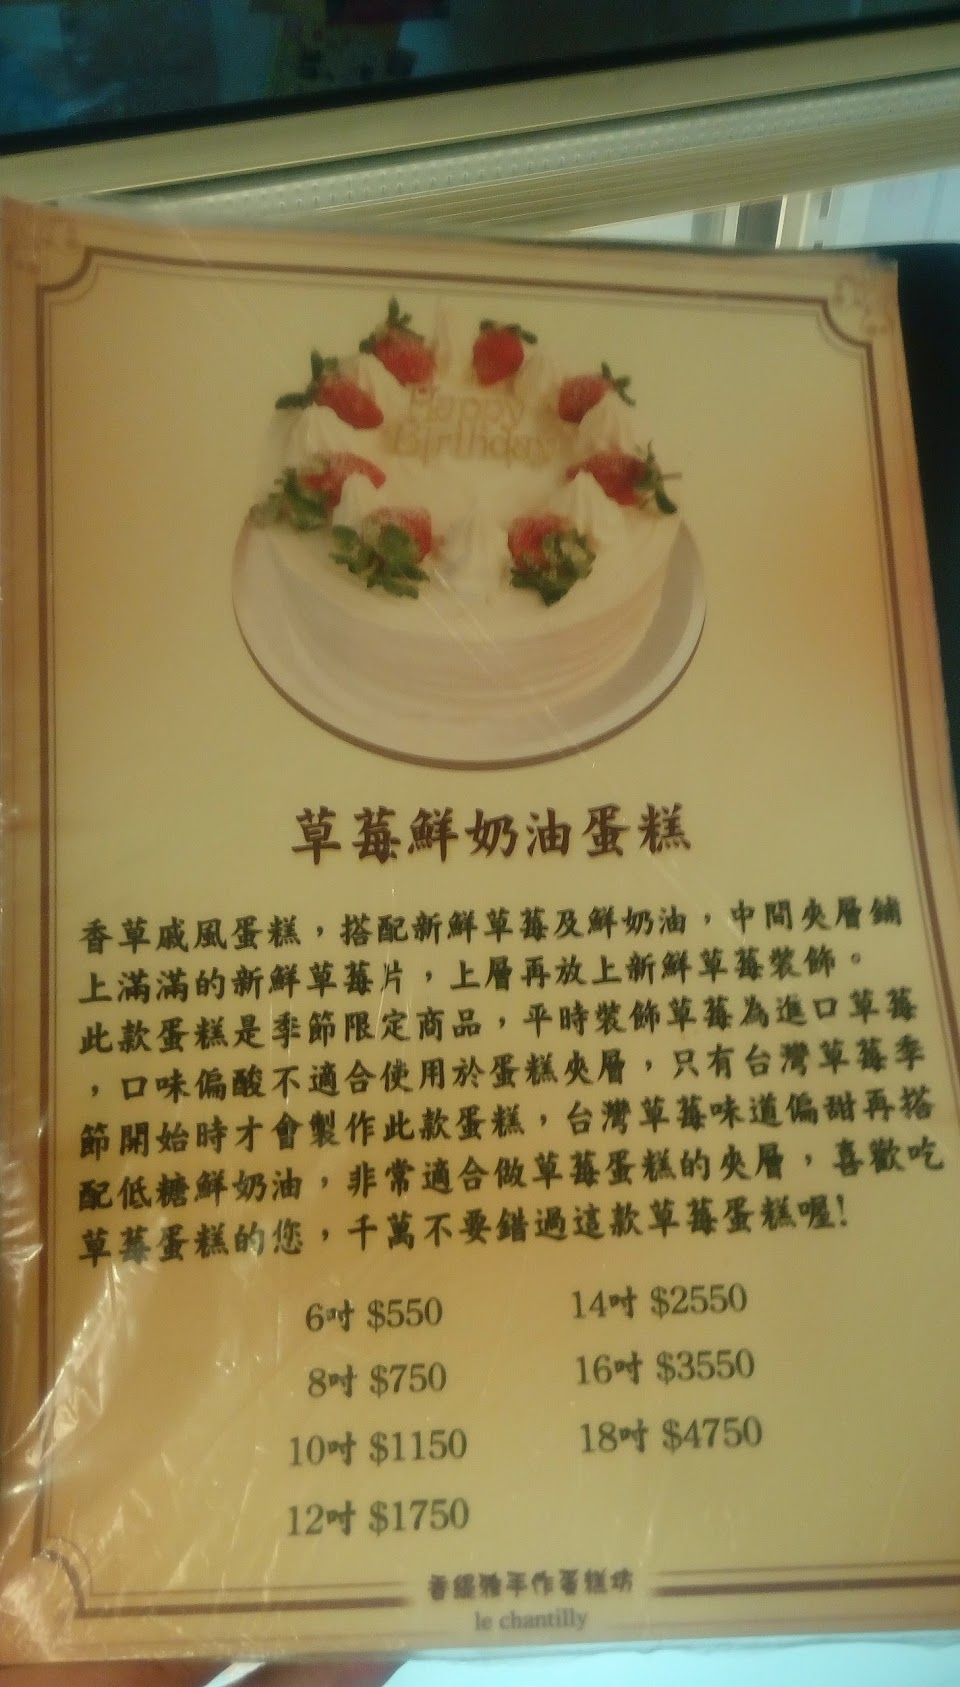 Happy
Birthday
草莓鮮奶油蛋糕
香草戚風蛋糕，搭配新鮮草莓及鮮奶油，中間夾層鋪
上滿滿的新鮮草莓片，上層再放上新鮮草莓裝飾。
此款蛋糕是季節限定商品，平時裝飾草莓為進口草莓
，口味偏酸不適合使用於蛋糕夾層，只有台灣草莓季
節開始時才會製作此款蛋糕，台灣草莓味道偏甜再搭
配低糖鮮奶油，非常適合做草莓蛋糕的夾層，喜歡吃
草莓蛋糕的您，千萬不要錯過這款草莓蛋糕喔!
6吋 $550
8吋 $750
10吋 $1150
12吋 $1750
14吋 $2550
16吋 $3550
18吋 $4750
香緹雅手作蛋糕坊
le chantilly